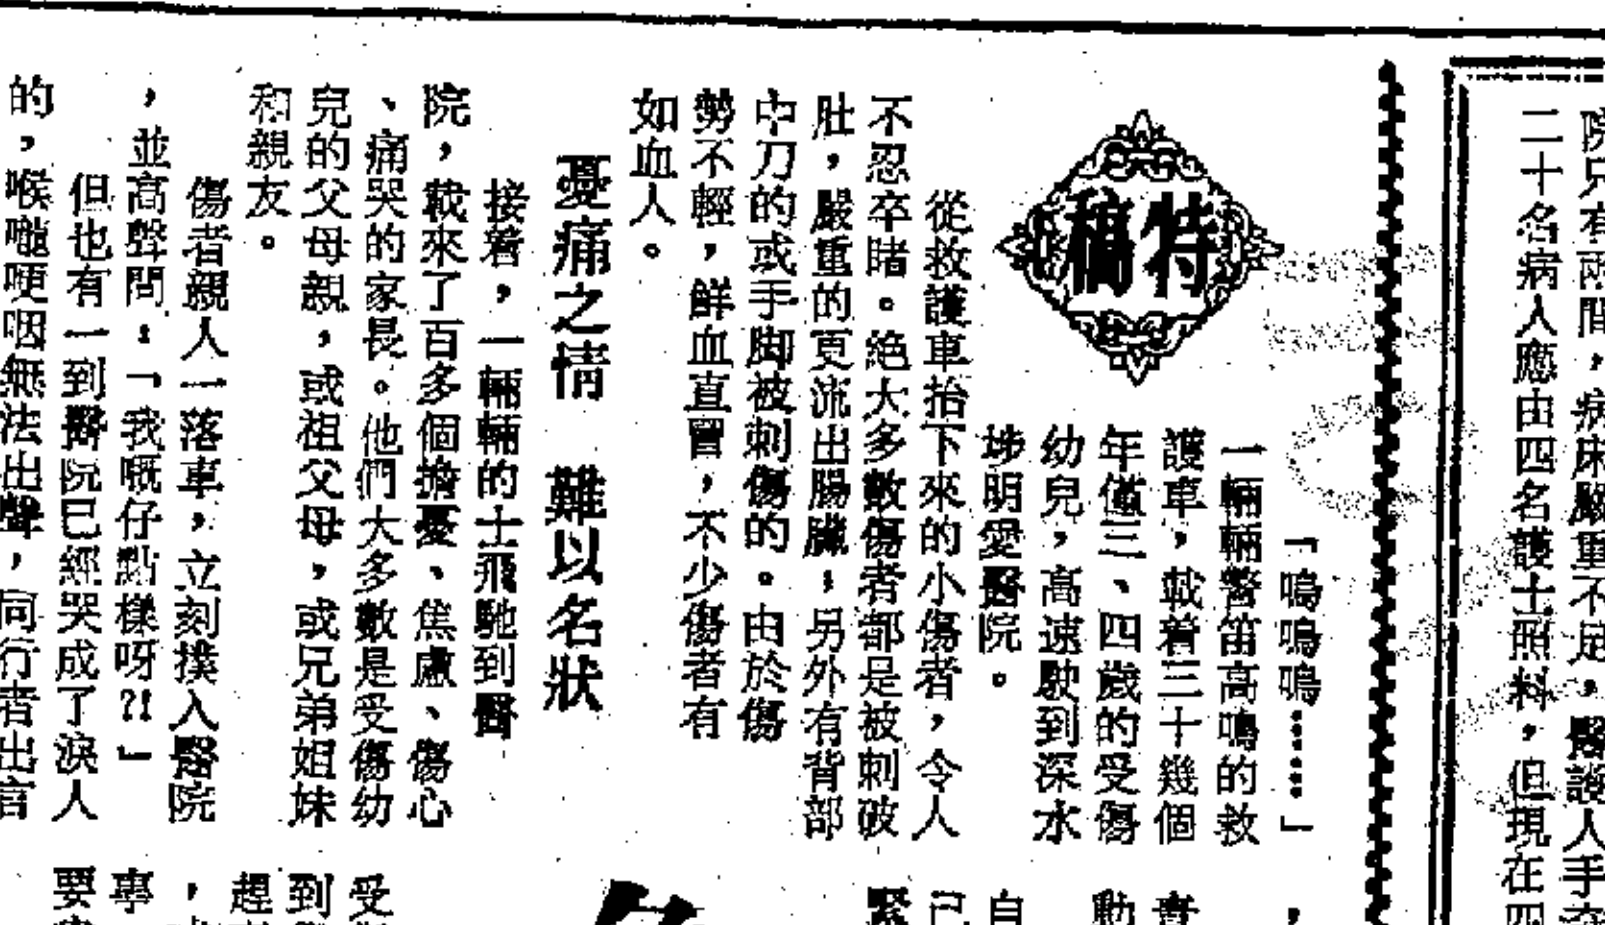 院只有兩間，病床嚴重不足。醫護人手
二十名病人應由四名護士照料，但現在四
特稿
「嗚嗚嗚……」
一輛輛警笛高鳴的救
護車，載着三十幾個
年僅三、四歲的受傷
幼兒，高速駛到深水
埗明愛醫院。
從救護車抬下來的小傷者，令人
不忍卒睹。絕大多數傷者都是被刺破
肚，嚴重的更流出腸臟；另外有背部
中刀的或手脚被刺傷的。由於傷
勢不輕，鮮血直冒，不少傷者有
如血人。
憂痛之情　難以名狀
接着，一輛輛的士飛馳到醫
院，載來了百多個擔憂、焦慮、傷心
、痛哭的家長。他們大多數是受傷幼
兒的父母親，或祖父母，或兄弟姐妹
和親友。
傷者親人一落車，立刻撲入醫院
，並高聲問：「我嘅仔點樣呀?!」
但也有一到醫院已經哭成了淚人
的，喉嚨哽咽無法出聲，同行者出言
，
責
動
自
已
緊
受
到
趕
，
專
要